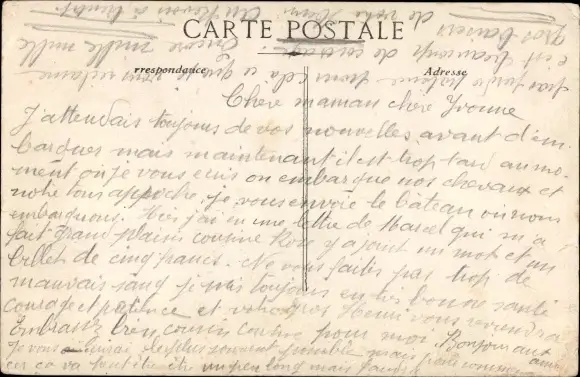 CARTE POSTALE
rrespondance
Adresse
Chere maman chere Yvonne
J'attendais toujours de vos nouvelles avant d'em
barquer mais maintenant il est trop tard au mo
ment ou je vous ecris on embarque nos chevaux et
notre tour approche. je vous envoie le bateau ou nous
embarquons. Hier j'ai eu une lettre de Marcel qui m'a
fait grand plaisir cousine Rose y a joint un mot et un
billet de cinq francs. Ne vous faites pas trop de
mauvais sang je suis toujours en tres bonne santé
courage et patience et votre gros Henri vous reviendra
Embrassez bien cousin cousine pour moi. Bonjour aux amis
Je vous ecrirai le plus souvent possible mais
ça va peut etre etre un peu long mais
pas perdre
c'est beaucoup de courage. Encore mille mille
gros baisers
de votre Henri. Au Revoir à bientôt